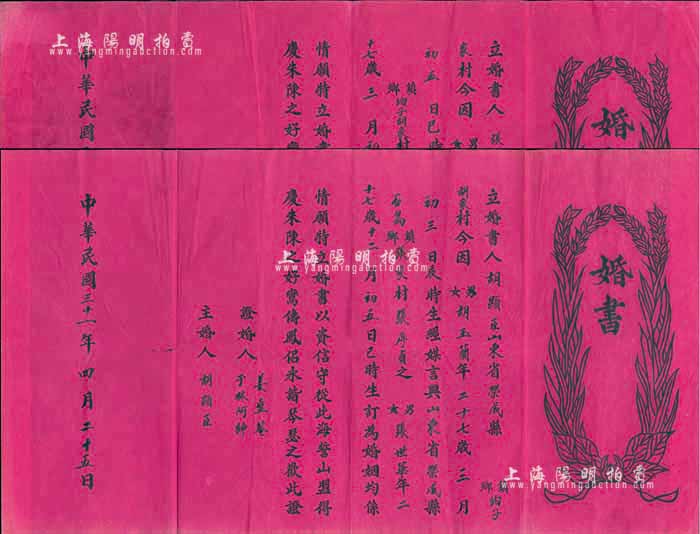 婚
立婚書人 張
家村今因 男 女
初五日巳時
十七歲三月初
情願特立婚書
慶朱陳之好
中華民國
婚書
立婚書人胡顯臣山東省榮成縣
鎮 鄉 泃子
胡家村今因 男 女 胡玉蘭年二十七歲三月
初三日 時生照媒言與山東省榮成縣
鎮 鄉 石島 張家村張序貞之 男 女 張世榮年二
十七歲十二月初五日巳時生訂為婚姻均係
情願特立婚書以資信守從此海誓山盟得
慶朱陳之好鸞儔鳳侶永諧琴瑟之歡此證
證婚人
主婚人 胡顯臣
中華民國三十一年四月二十五日
上海陽明拍賣
www.yangmingauction.com
上海陽明拍賣
www.yangmingauction.com
上海陽明拍賣
www.yangmingauction.com
上海陽明拍賣
www.yangmingauction.com